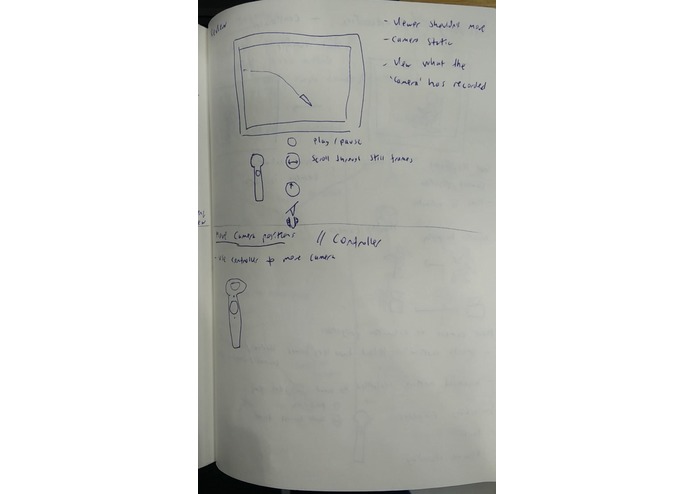 Review
- Viewer shouldn't move
- Camera static
- View what the
'camera' has recorded
Play / pause
Scroll through still frames
Move Camera positions // Controller
- use controller to move camera